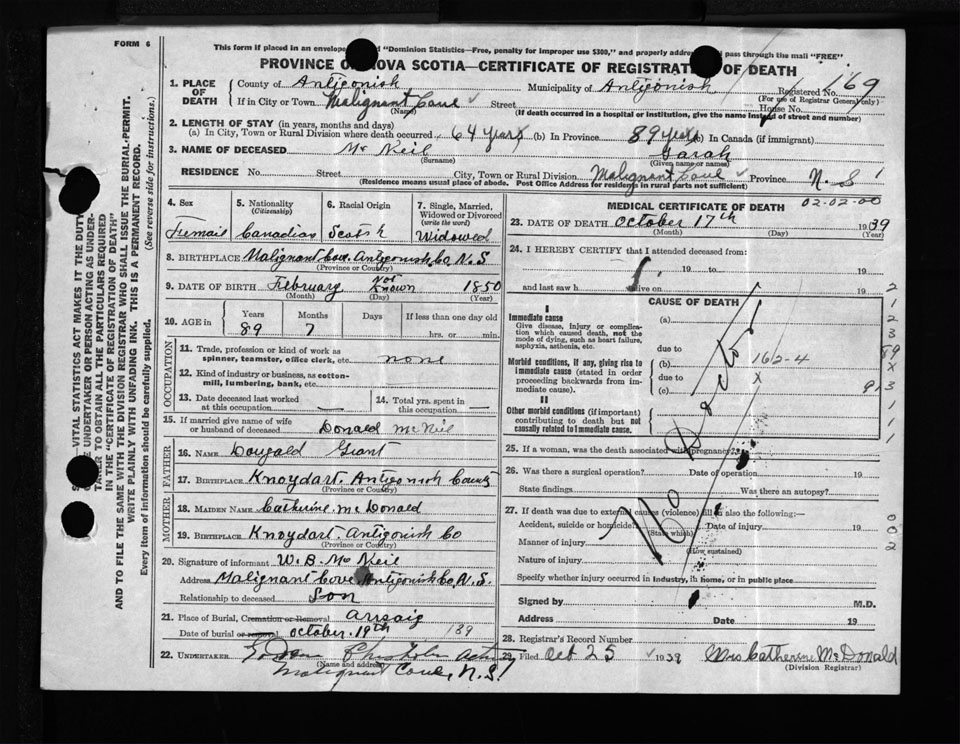 FORM 6
This form if placed in an envelope "Dominion Statistics—Free, penalty for improper use $300," and properly addressed pass through the mail "FREE"
PROVINCE OF NOVA SCOTIA—CERTIFICATE OF REGISTRATION OF DEATH
1. PLACE OF DEATH County of Antigonish Municipality of Antigonish Registered No. 169
(For use of Registrar General only)
If in City or Town Malignant Cove Street House No.
(Name) (If death occurred in a hospital or institution, give the name instead of street and number)
2. LENGTH OF STAY (in years, months and days)
(a) In City, Town or Rural Division where death occurred 64 years (b) In Province 89 years (c) In Canada (if immigrant)
3. NAME OF DECEASED Mc Neil Sarah
(Surname) (Given name or names)
RESIDENCE No. Street City, Town or Rural Division Malignant Cove Province N. S
(Residence means usual place of abode. Post Office Address for residents in rural parts not sufficient)
4. Sex 5. Nationality (Citizenship) 6. Racial Origin 7. Single, Married, Widowed or Divorced (write the word)
Femail Canadian Scotsh Widowed
8. BIRTHPLACE Malignant Cove Antigonish Co, N. S
(Province or Country)
9. DATE OF BIRTH February Not Known 1850
(Month) (Day) (Year)
10. AGE in Years Months Days If less than one day
89 7 hrs. or min.
OCCUPATION
11. Trade, profession or kind of work as spinner, teamster, office clerk, etc. none
12. Kind of industry or business, as cotton-mill, lumbering, bank, etc.
13. Date deceased last worked at this occupation 14. Total yrs. spent in this occupation
15. If married give name of wife or husband of deceased Donald McNeil
FATHER
16. NAME Dougald Grant
17. BIRTHPLACE Knoydart. Antigonish County
(Province or Country)
MOTHER
18. MAIDEN NAME Catherine. McDonald
19. BIRTHPLACE Knoydart. Antigonish Co
(Province or Country)
20. Signature of informant W. B. Mc Neil
Address Malignant Cove Antigonish Co, N. S.
Relationship to deceased Son
21. Place of Burial, Cremation or Removal Arisaig
Date of burial or removal October. 19th 139
22. UNDERTAKER Chisholm
(Name and Address)
Malignant Cove, N. S.
MEDICAL CERTIFICATE OF DEATH 02-02-00
23. DATE OF DEATH October 17th 1939
(Month) (Day) (Year)
24. I HEREBY CERTIFY that I attended deceased from:
19 to 19
last saw h alive on 19
CAUSE OF DEATH
I
Immediate cause (a)
Give disease, injury or complication which caused death, not the mode of dying, such as heart failure, asphyxia, asthenia, etc.
due to
Morbid conditions, if any, giving rise to immediate cause (stated in order proceeding backwards from immediate cause). (b) 162-4
due to X
(c)
II
Other morbid conditions (if important) contributing to death but not causally related to immediate cause.
No Doctor
25. If a woman, was the death associated with pregnancy?
26. Was there a surgical operation? Date of operation 19
State findings Was there an autopsy?
27. If death was due to external causes (violence) fill in also the following:—
Accident, suicide or homicide? Date of injury 19
(State which)
Manner of injury
(How sustained)
Nature of injury
Specify whether injury occurred in industry, in home, or in public place
Signed by M.D.
Address Date 19
28. Registrar's Record Number
29. Filed Oct 25 1939 Mrs Catherine McDonald
(Division Registrar)
VITAL STATISTICS ACT MAKES IT THE DUTY
UNDERTAKER OR PERSON ACTING AS UNDERTAKER TO OBTAIN ALL THE PARTICULARS REQUIRED
IN THE "CERTIFICATE OF REGISTRATION OF DEATH"
AND TO FILE THE SAME WITH THE DIVISION REGISTRAR WHO SHALL ISSUE THE BURIAL-PERMIT.
WRITE PLAINLY WITH UNFADING INK. THIS IS A PERMANENT RECORD.
Every item of information should be carefully supplied. (See reverse side for instructions.)